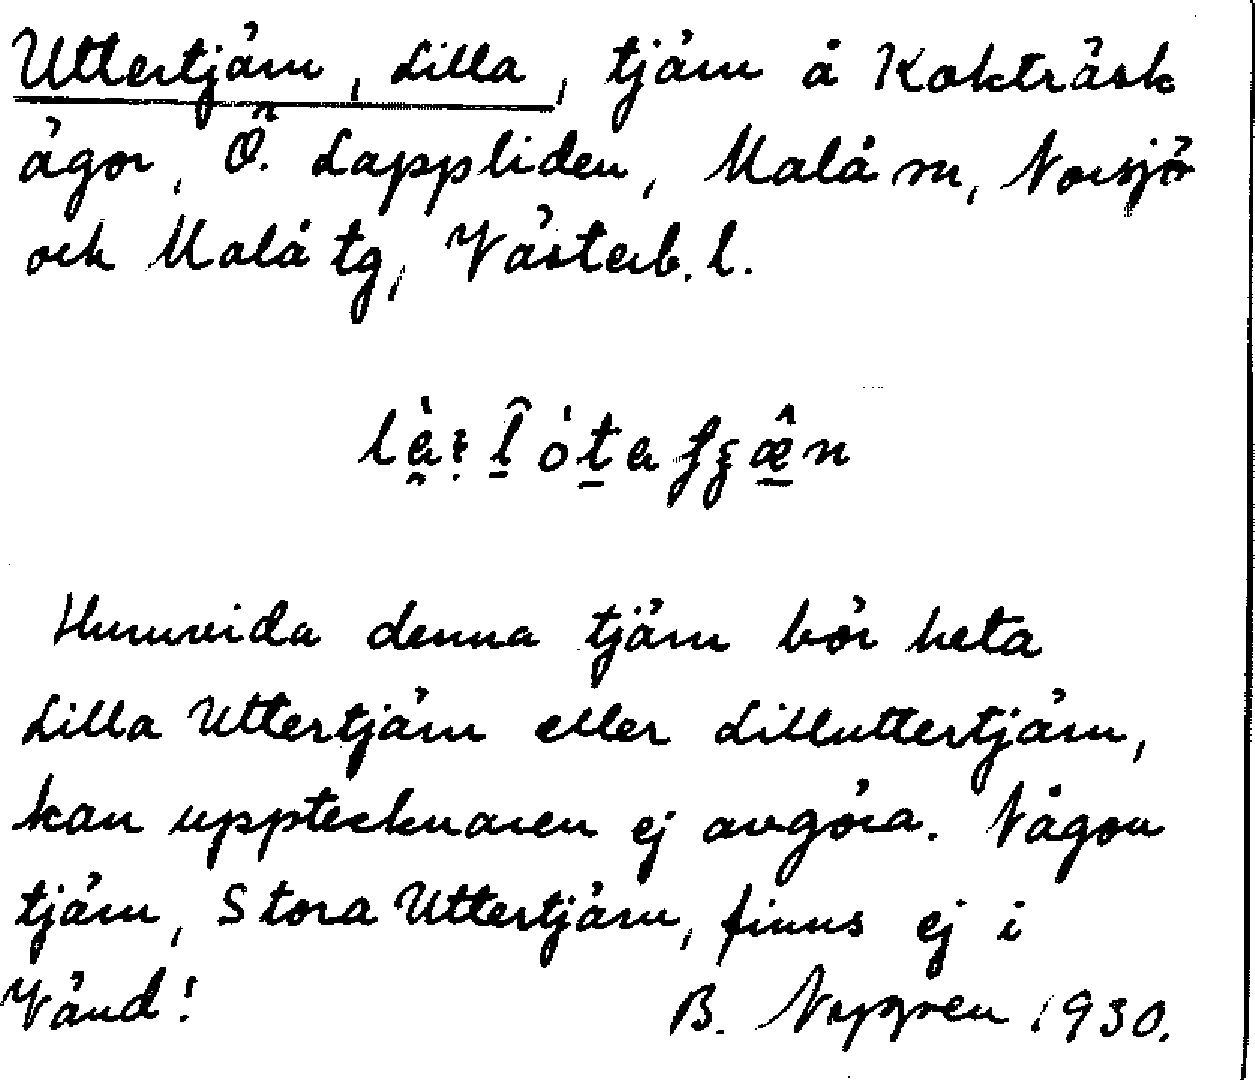 Uttertjärn, Lilla, tjärn å Kokträsk
ägor, Ö. Lappliden, Malå sn, Norsjö
och Malå tg, Västerb. l.
Huruvida denna tjärn bör heta
Lilla Uttertjärn eller Lilluttertjärn,
kan upptecknaren ej avgöra. Någon
tjärn, Stora Uttertjärn, finns ej i
Vänd!
B. Nygren 1930.